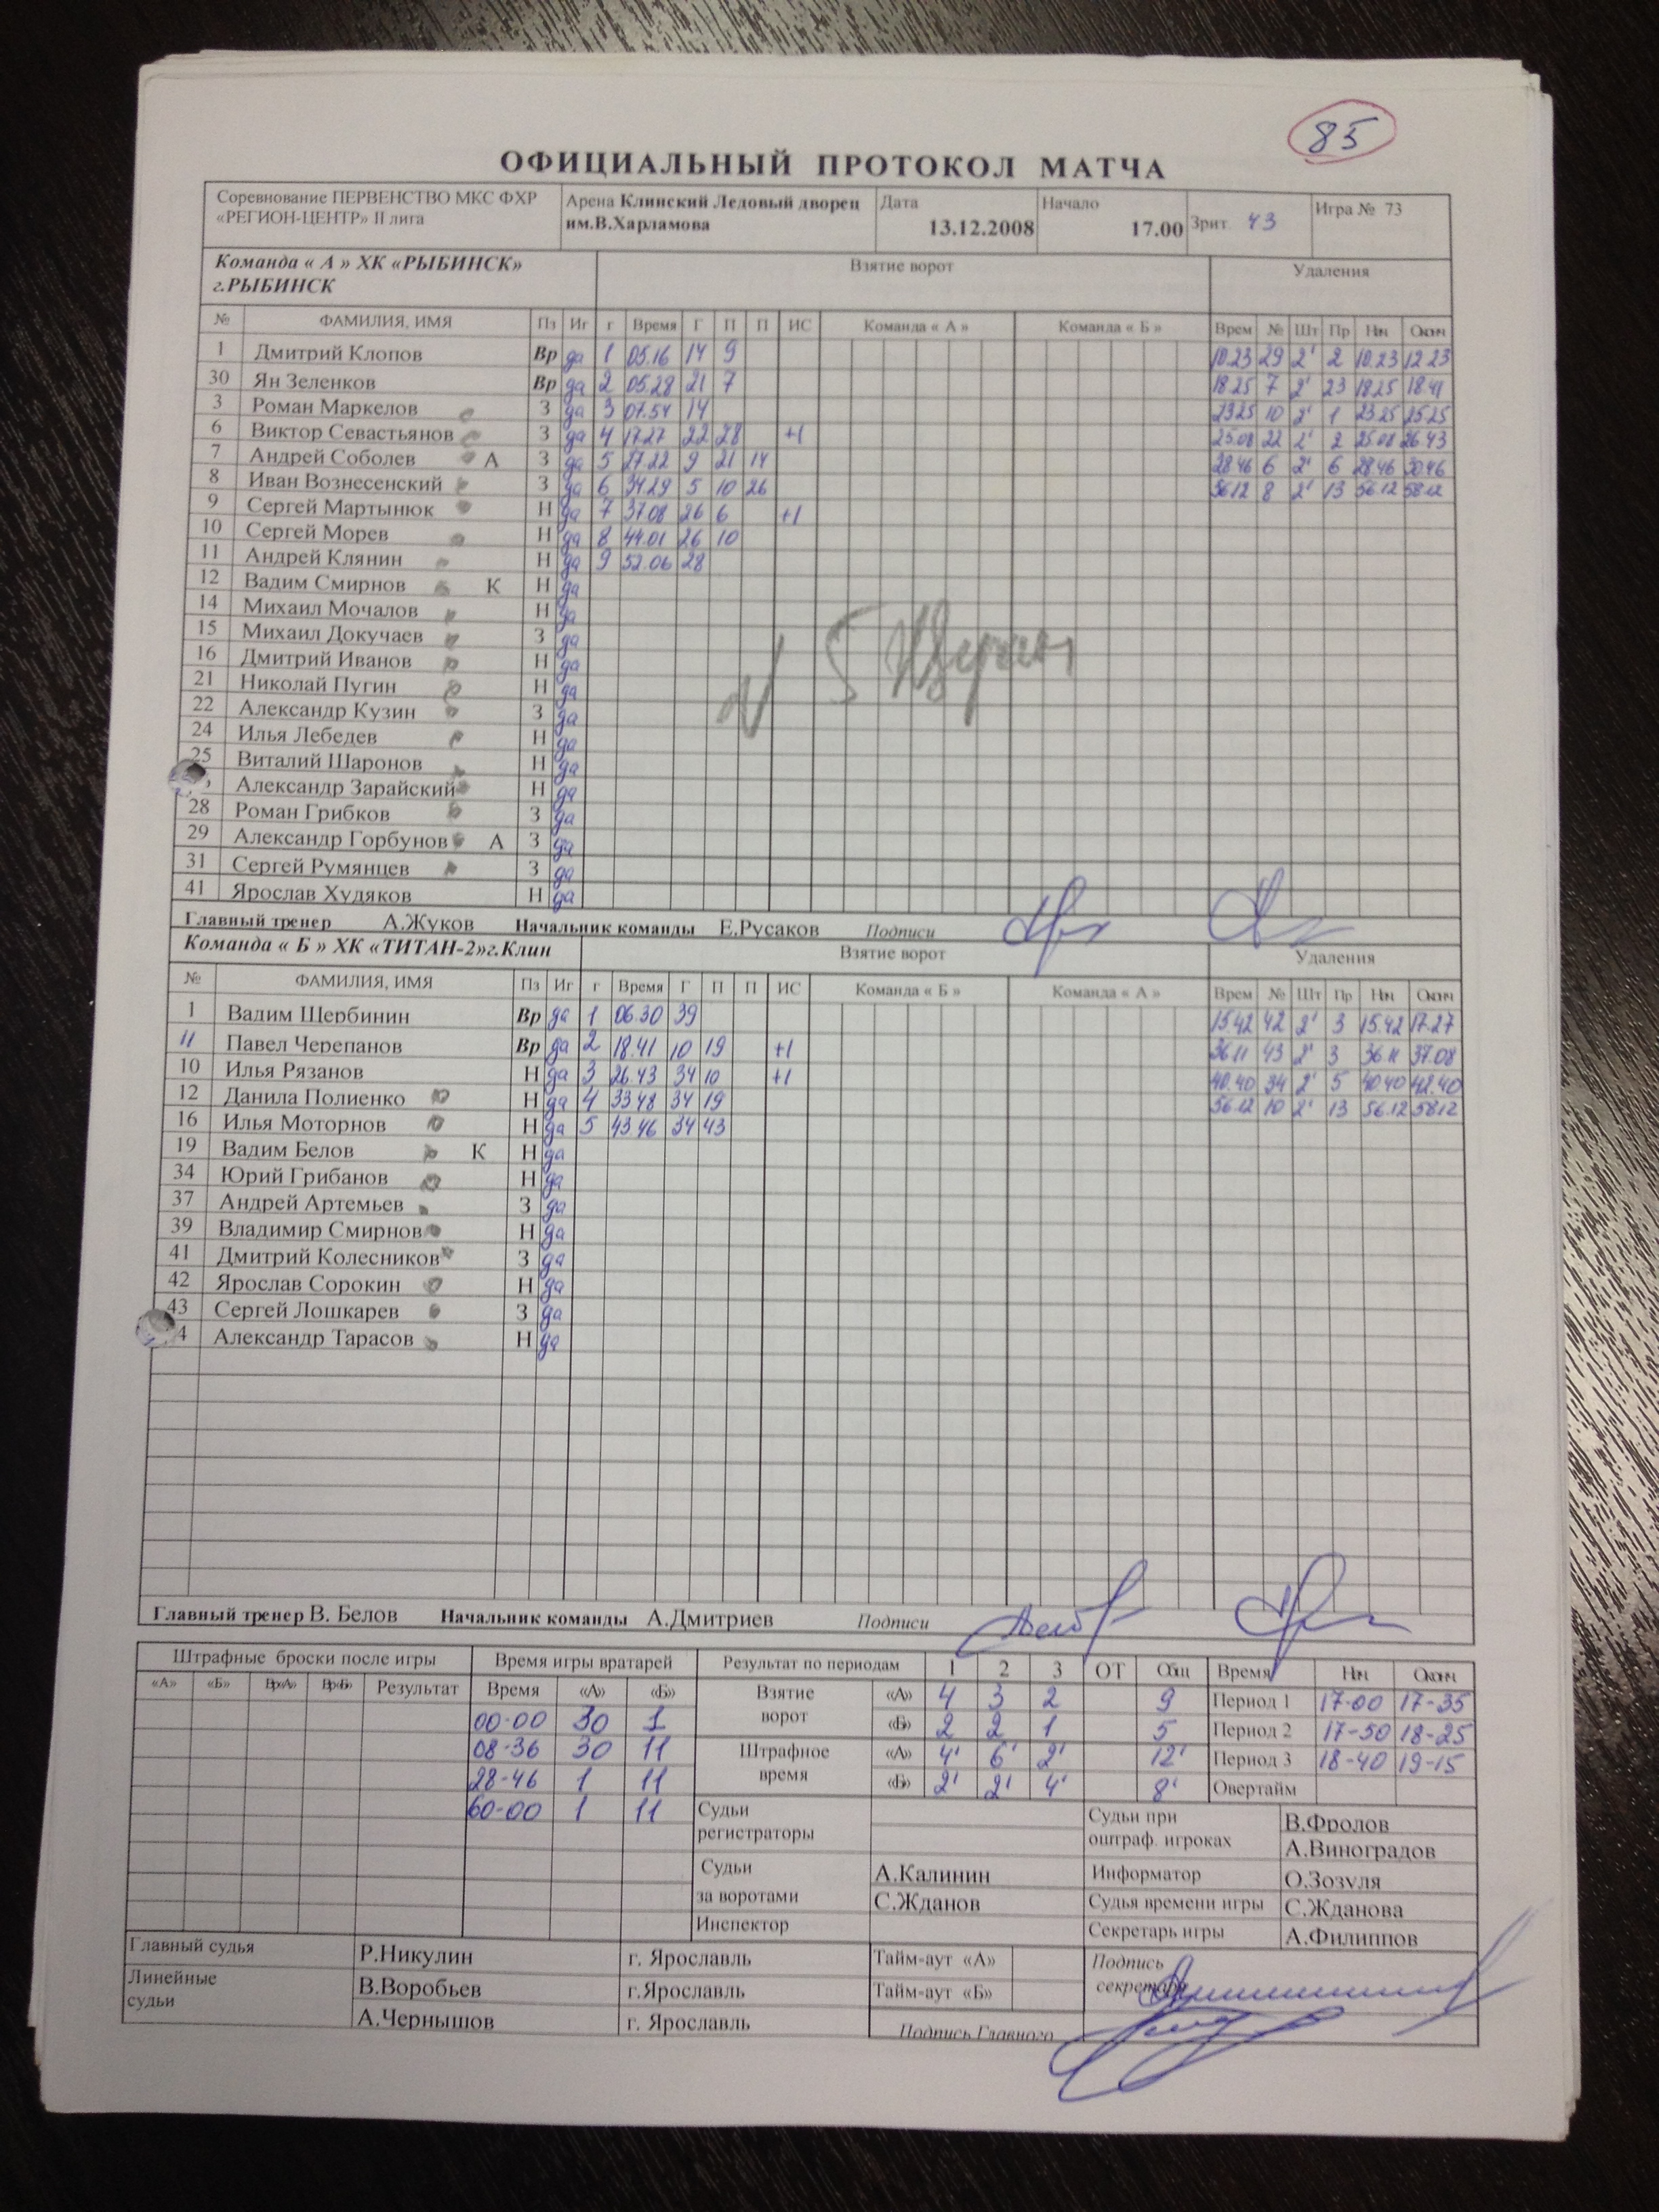 85
ОФИЦИАЛЬНЫЙ ПРОТОКОЛ МАТЧА
Соревнование ПЕРВЕНСТВО МКС ФХР «РЕГИОН-ЦЕНТР» II лига Арена Клинский Ледовый дворец им.В.Харламова Дата 13.12.2008 Начало 17.00 Зрит. 43 Игра № 73
Команда « А » ХК «РЫБИНСК» г.РЫБИНСК Взятие ворот Удаления
№ ФАМИЛИЯ, ИМЯ Пз Иг г Время Г П П ИС Команда « А » Команда « Б » Врем № Шт Пр Нач Оконч
1 Дмитрий Клопов Вр да 1 05.16 14 9 10.23 29 2' 2 10.23 12.23
30 Ян Зеленков Вр да 2 05.28 21 7 18.25 7 2' 23 18.25 18.41
3 Роман Маркелов З да 3 07.54 14 23.25 10 2' 1 23.25 25.25
6 Виктор Севастьянов З да 4 17.27 22 28 +1 25.08 22 2' 2 25.08 26.43
7 Андрей Соболев А З да 5 27.22 9 21 14 28.46 6 2' 6 28.46 30.46
8 Иван Вознесенский З да 6 34.29 5 10 26 56.12 8 2' 13 56.12 58.12
9 Сергей Мартынюк Н да 7 37.08 26 6 +1
10 Сергей Морев Н да 8 44.01 26 10
11 Андрей Клянин Н да 9 52.06 28
12 Вадим Смирнов К Н да
14 Михаил Мочалов Н да
15 Михаил Докучаев З да
16 Дмитрий Иванов Н да
21 Николай Пугин Н да
22 Александр Кузин З да
24 Илья Лебедев Н да
25 Виталий Шаронов Н да
Александр Зарайский Н да
28 Роман Грибков З да
29 Александр Горбунов А З да
31 Сергей Румянцев З да
41 Ярослав Худяков Н да
Главный тренер А.Жуков Начальник команды Е.Русаков Подписи
Команда « Б » ХК «ТИТАН-2»г.Клин Взятие ворот Удаления
№ ФАМИЛИЯ, ИМЯ Пз Иг г Время Г П П ИС Команда « Б » Команда « А » Врем № Шт Пр Нач Оконч
1 Вадим Щербинин Вр да 1 06.30 39 15.42 42 2' 3 15.42 17.27
11 Павел Черепанов Вр да 2 18.41 10 19 +1 36.11 43 2' 3 36.11 37.08
10 Илья Рязанов Н да 3 26.43 34 10 +1 40.40 34 2' 5 40.40 42.40
12 Данила Полиенко Н да 4 33.48 34 19 56.12 10 2' 13 56.12 58.12
16 Илья Моторнов Н да 5 43.46 34 43
19 Вадим Белов К Н да
34 Юрий Грибанов Н да
37 Андрей Артемьев З да
39 Владимир Смирнов Н да
41 Дмитрий Колесников З да
42 Ярослав Сорокин Н да
43 Сергей Лошкарев З да
4 Александр Тарасов Н да
Главный тренер В. Белов Начальник команды А.Дмитриев Подписи
Штрафные броски после игры Время игры вратарей Результат по периодам 1 2 3 ОТ Общ Время Нач Оконч
«А» «Б» Вр«А» Вр«Б» Результат Время «А» «Б» Взятие ворот «А» 4 3 2 9 Период 1 17-00 17-35
00-00 30 1 «Б» 2 2 1 5 Период 2 17-50 18-25
08-36 30 11 Штрафное время «А» 4' 6' 2' 12' Период 3 18-40 19-15
28-46 1 11 «Б» 2' 2' 4' 8' Овертайм
60-00 1 11 Судьи регистраторы Судьи при оштраф. игроках В.Фролов
А.Виноградов
Судьи за воротами А.Калинин Информатор О.Зозуля
С.Жданов Судья времени игры С.Жданова
Инспектор Секретарь игры А.Филиппов
Главный судья Р.Никулин г. Ярославль Тайм-аут «А» Подпись секретаря
Линейные судьи В.Воробьев г.Ярославль Тайм-аут «Б»
А.Чернышов г. Ярославль Подпись Главного